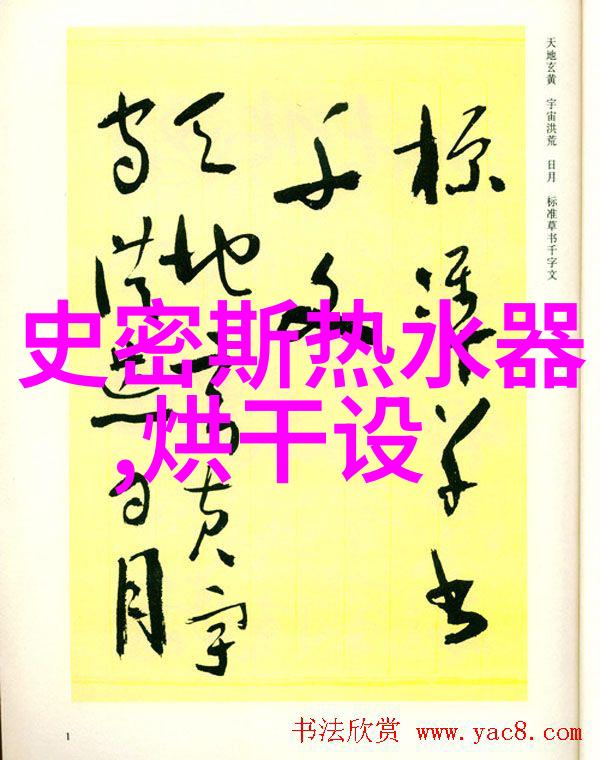 天地玄黄 宇宙洪荒 日月 标准草书千字文
標準草書
千文
天地玄黄宇
宙洪荒日月
史密斯热水器
,烘干设
1
书法欣赏 www.yac8.com